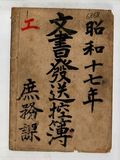 昭和十七年
文書發送控簿
庶務課
工